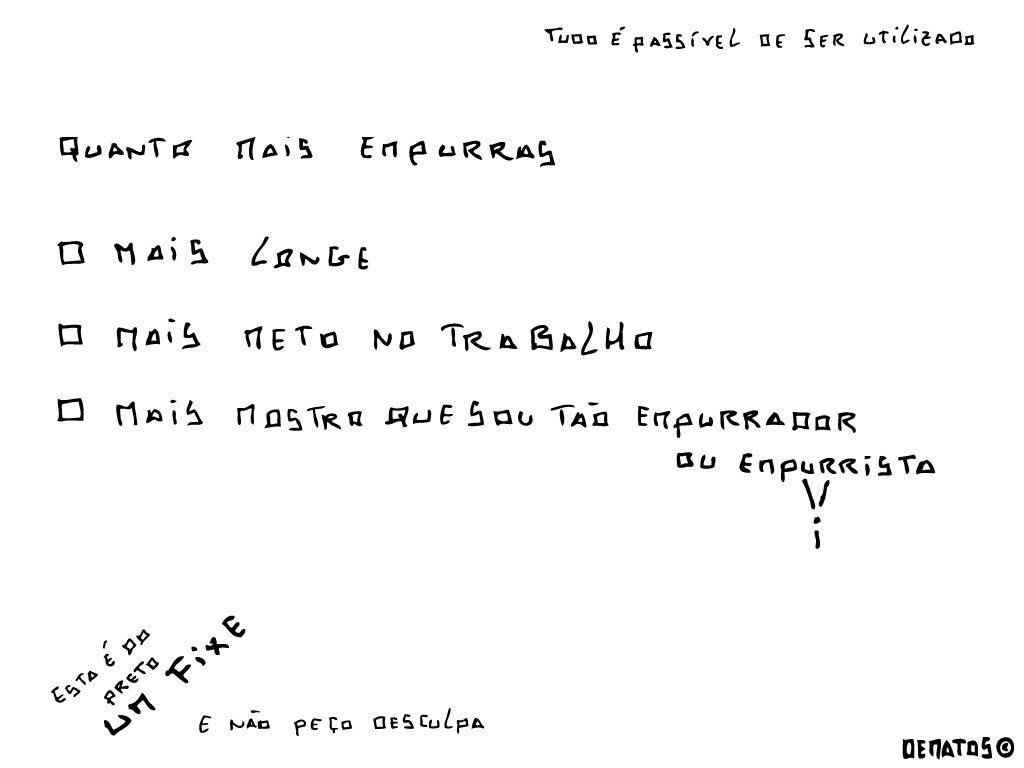 TUDO É PASSÍVEL DE SER UTILIZADO
QUANTO MAIS EMPURRAS
MAIS LONGE
MAIS METO NO TRABALHO
MAIS MOSTRO QUE SOU TÃO EMPURRADOR
OU EMPURRISTA
i
ESTA É DO
PRETO
UM FIXE
E NÃO PEÇO DESCULPA
DEMATOS©